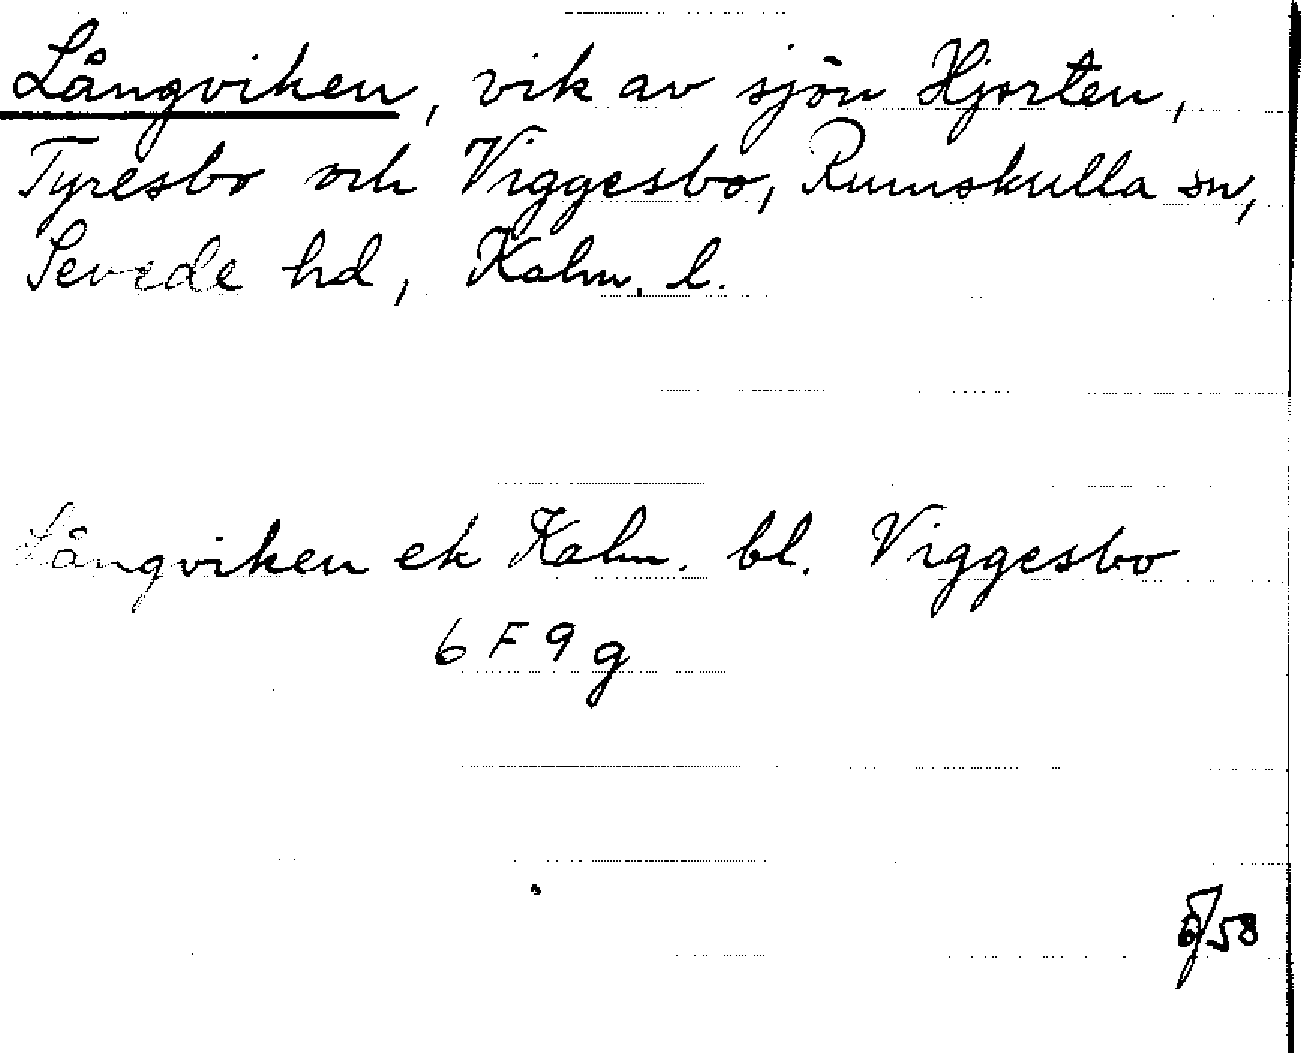 Långviken, vik av sjön Hjorten,
Tyresbo och Viggesbo, Rumskulla sn,
Sevede hd, Kalm. l.
Långviken ek Kalm. bl. Viggesbo
6 F 9 g